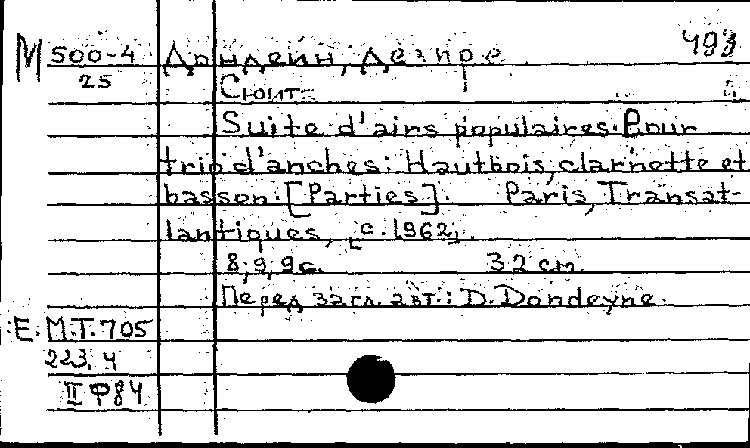 М 500-4 Дондейн, Дезире. 493
25
Сюит
Suite d'airs populaires. Pour
trio d'anches: Hautbois, clarinette et
basson. [Parties]. Paris, Transat-
lantiques, [c. 1962].
8, 9, 9 с. 32 см.
Перед загл. авт.: D. Dondeyne.
E. M.T. 705
223. 4
II Ф84